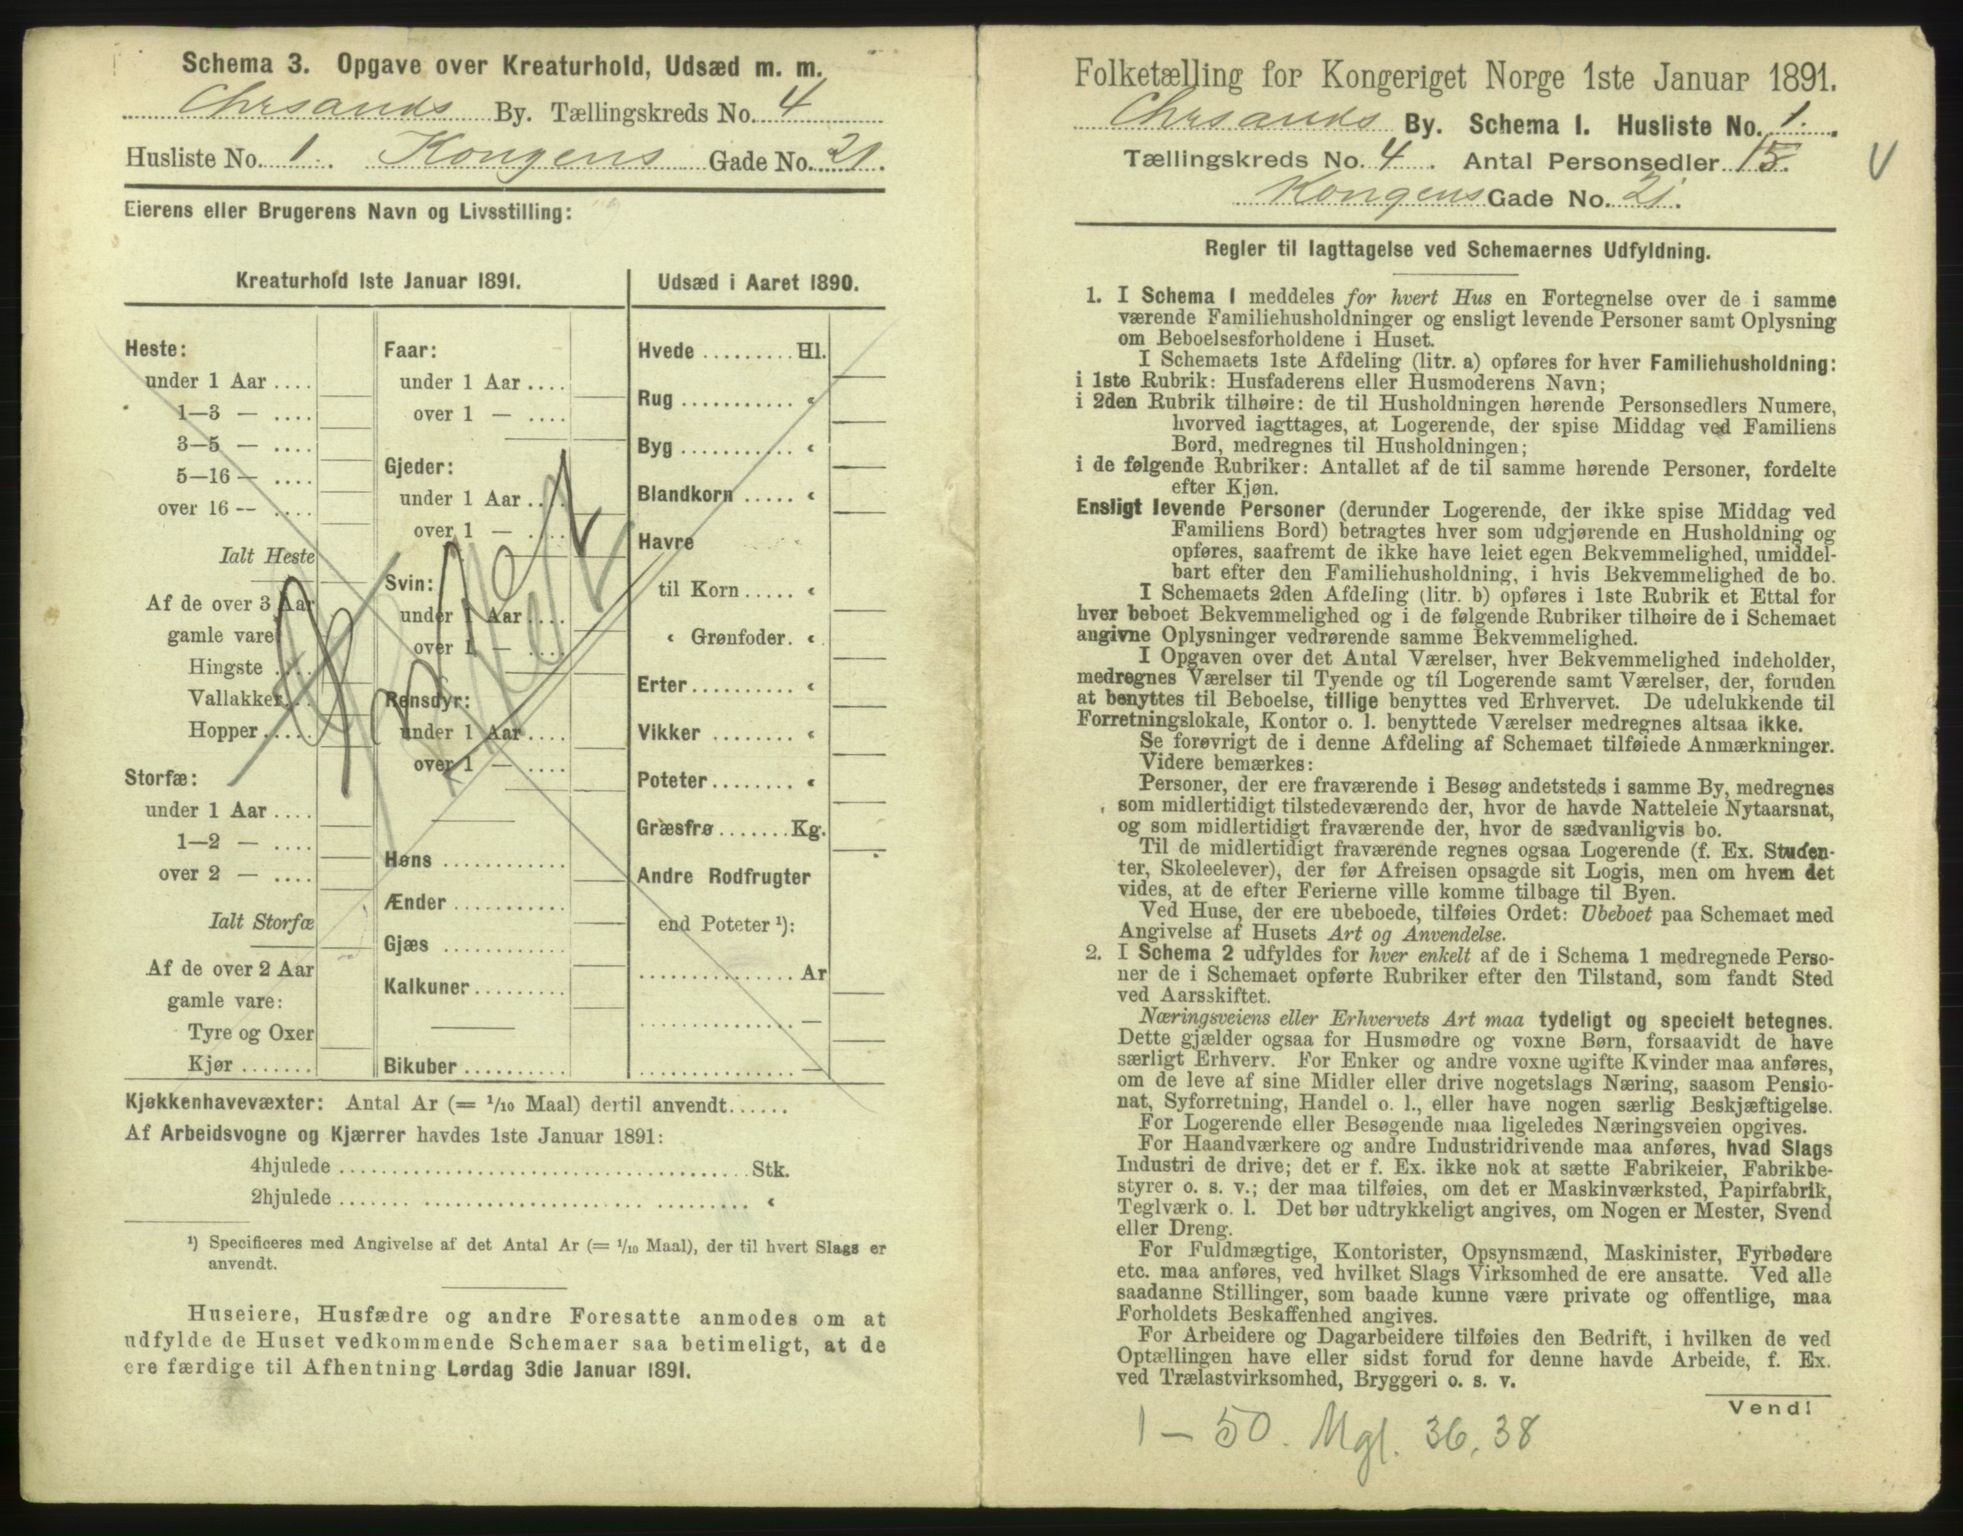 Schema 3. Opgave over Kreaturhold, Udsæd m. m.
Chrsands By. Tællingskreds No. 4
Husliste No. 1. Kongens Gade No. 21.
Eierens eller Brugerens Navn og Livsstilling:
Kreaturhold 1ste Januar 1891.
Heste:
under 1 Aar ....
1—3 — ....
3—5 — ....
5—16 — ....
over 16 — ....
Ialt Heste
Af de over 3 Aar
gamle vare
Hingste ....
Vallakker....
Hopper.....
Storfæ:
under 1 Aar ....
1—2 — ....
over 2 — ....
Ialt Storfæ
Af de over 2 Aar
gamle vare:
Tyre og Oxer
Kjør .......
Faar:
under 1 Aar ....
over 1 — ....
Gjeder:
under 1 Aar ....
over 1 — ....
Svin:
under 1 Aar ....
over 1 — ....
Rensdyr:
under 1 Aar ....
over 1 — ....
Høns ............
Ænder ...........
Gjæs ............
Kalkuner.........
Bikuber..........
Udsæd i Aaret 1890.
Hvede .........Hl.
Rug ........... «
Byg ........... «
Blandkorn ..... «
Havre
til Korn..... «
« Grønfoder. «
Erter.......... «
Vikker ........ «
Poteter........ «
Græsfrø.......Kg.
Andre Rodfrugter
end Poteter ¹):
............... Ar
............... —
............... —
Kjøkkenhavevæxter: Antal Ar (= 1/10 Maal) dertil anvendt......
Af Arbeidsvogne og Kjærrer havdes 1ste Januar 1891:
4hjulede ........................................ Stk.
2hjulede ........................................ «
¹) Specificeres med Angivelse af det Antal Ar (= 1/10 Maal), der til hvert Slags er
anvendt.
Huseiere, Husfædre og andre Foresatte anmodes om at
udfylde de Huset vedkommende Schemaer saa betimeligt, at de
ere færdige til Afhentning Lørdag 3die Januar 1891.
Folketælling for Kongeriget Norge 1ste Januar 1891.
Chrsands By. Schema I. Husliste No. 1.
Tællingskreds No. 4. Antal Personsedler 15.
Kongens Gade No. 21.
Regler til Iagttagelse ved Schemaernes Udfyldning.
1. I Schema 1 meddeles for hvert Hus en Fortegnelse over de i samme
værende Familiehusholdninger og ensligt levende Personer samt Oplysning
om Beboelsesforholdene i Huset.
I Schemaets 1ste Afdeling (litr. a) opføres for hver Familiehusholdning:
i 1ste Rubrik: Husfaderens eller Husmoderens Navn;
i 2den Rubrik tilhøire: de til Husholdningen hørende Personsedlers Numere,
hvorved iagttages, at Logerende, der spise Middag ved Familiens
Bord, medregnes til Husholdningen;
i de følgende Rubriker: Antallet af de til samme hørende Personer, fordelte
efter Kjøn.
Ensligt levende Personer (derunder Logerende, der ikke spise Middag ved
Familiens Bord) betragtes hver som udgjørende en Husholdning og
opføres, saafremt de ikke have leiet egen Bekvemmelighed, umiddel-
bart efter den Familiehusholdning, i hvis Bekvemmelighed de bo.
I Schemaets 2den Afdeling (litr. b) opføres i 1ste Rubrik et Ettal for
hver beboet Bekvemmelighed og i de følgende Rubriker tilhøire de i Schemaet
angivne Oplysninger vedrørende samme Bekvemmelighed.
I Opgaven over det Antal Værelser, hver Bekvemmelighed indeholder,
medregnes Værelser til Tyende og til Logerende samt Værelser, der, foruden
at benyttes til Beboelse, tillige benyttes ved Erhvervet. De udelukkende til
Forretningslokale, Kontor o. l. benyttede Værelser medregnes altsaa ikke.
Se forøvrigt de i denne Afdeling af Schemaet tilføiede Anmærkninger.
Videre bemærkes:
Personer, der ere fraværende i Besøg andetsteds i samme By, medregnes
som midlertidigt tilstedeværende der, hvor de havde Natteleie Nytaarsnat,
og som midlertidigt fraværende der, hvor de sædvanligvis bo.
Til de midlertidigt fraværende regnes ogsaa Logerende (f. Ex. Studen-
ter, Skoleelever), der før Afreisen opsagde sit Logis, men om hvem det
vides, at de efter Ferierne ville komme tilbage til Byen.
Ved Huse, der ere ubeboede, tilføies Ordet: Ubeboet paa Schemaet med
Angivelse af Husets Art og Anvendelse.
2. I Schema 2 udfyldes for hver enkelt af de i Schema 1 medregnede Perso-
ner de i Schemaet opførte Rubriker efter den Tilstand, som fandt Sted
ved Aarsskiftet.
Næringsveiens eller Erhvervets Art maa tydeligt og specielt betegnes.
Dette gjælder ogsaa for Husmødre og voxne Børn, forsaavidt de have
særligt Erhverv. For Enker og andre voxne ugifte Kvinder maa anføres,
om de leve af sine Midler eller drive nogetslags Næring, saasom Pensio-
nat, Syforretning, Handel o. l., eller have nogen særlig Beskjæftigelse.
For Logerende eller Besøgende maa ligeledes Næringsveien opgives.
For Haandværkere og andre Industridrivende maa anføres, hvad Slags
Industri de drive; det er f. Ex. ikke nok at sætte Fabrikeier, Fabrikbe-
styrer o. s. v.; der maa tilføies, om det er Maskinværksted, Papirfabrik,
Teglværk o. l. Det bør udtrykkeligt angives, om Nogen er Mester, Svend
eller Dreng.
For Fuldmægtige, Kontorister, Opsynsmænd, Maskinister, Fyrbødere
etc. maa anføres, ved hvilket Slags Virksomhed de ere ansatte. Ved alle
saadanne Stillinger, som baade kunne være private og offentlige, maa
Forholdets Beskaffenhed angives.
For Arbeidere og Dagarbeidere tilføies den Bedrift, i hvilken de ved
Optællingen have eller sidst forud for denne havde Arbeide, f. Ex.
ved Trælastvirksomhed, Bryggeri o. s. v.
Vend!
1 — 50. Mgl. 36, 38